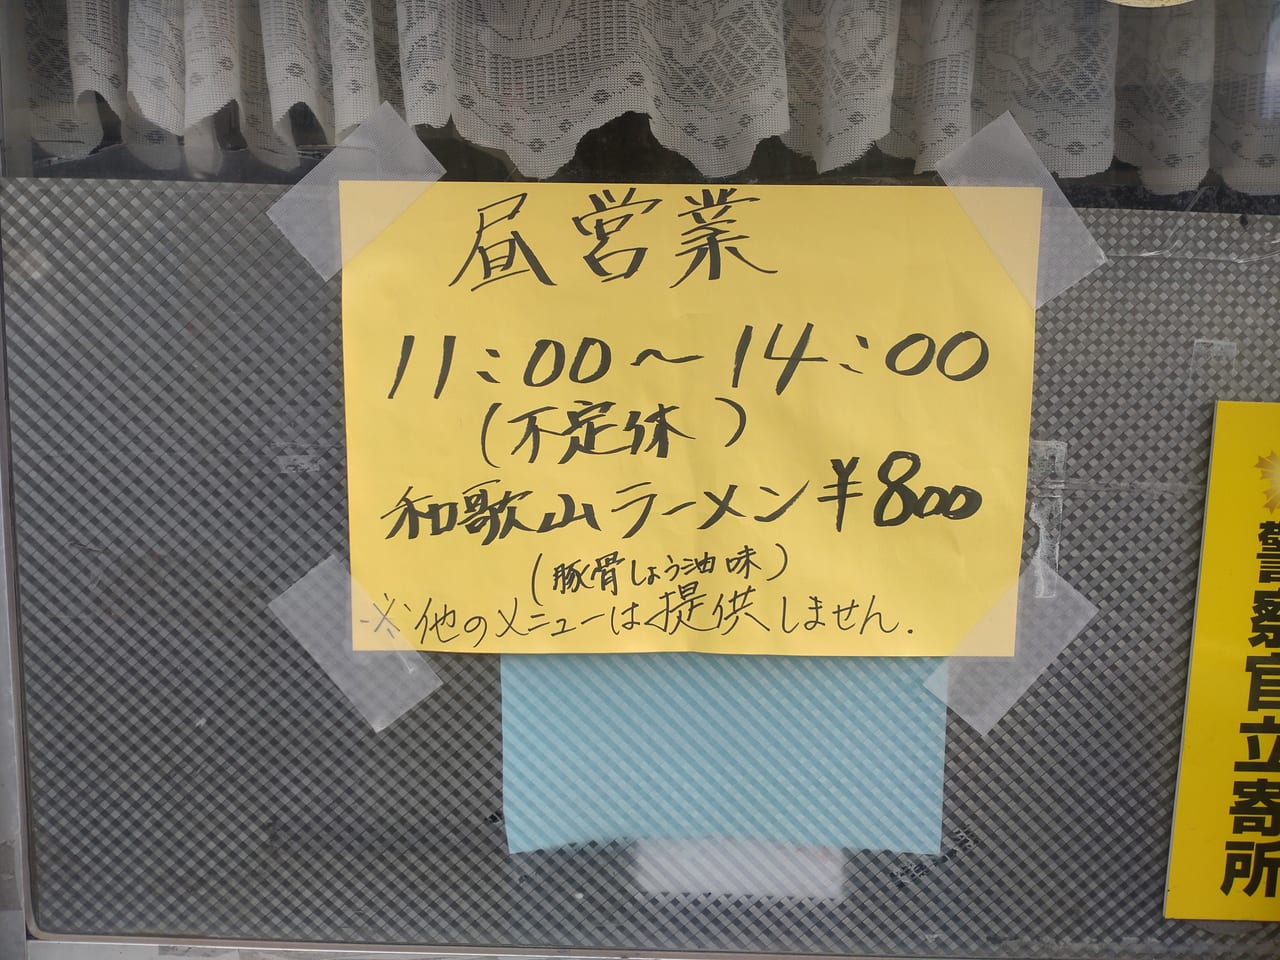 昼営業
11:00〜14:00
(不定休)
和歌山ラーメン¥800
(豚骨しょう油味)
※他のメニューは提供しません.
警察官立寄所